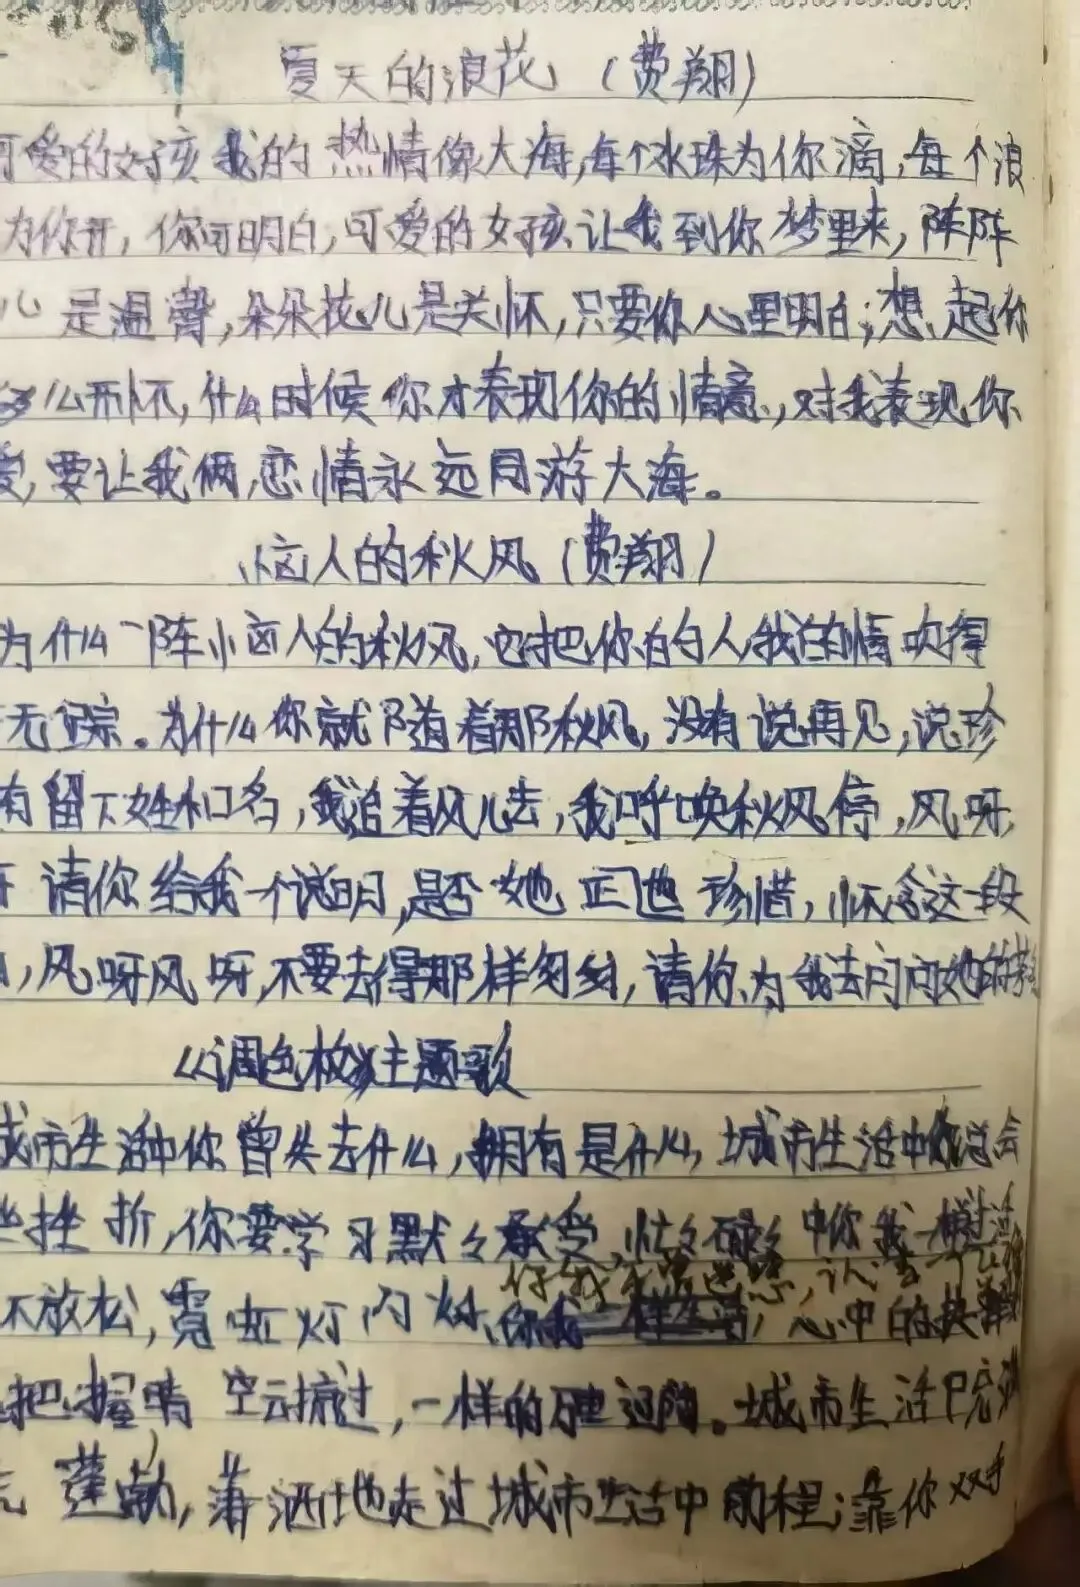 夏天的浪花（费翔）
可爱的女孩我的热情像大海,每个水珠为你滴,每个浪
为你开,你可明白,可爱的女孩让我到你梦里来,阵阵
儿是温馨,朵朵花儿是关怀,只要你心里明白;想起你
多么开怀,什么时候你才表现你的情意,对我表现你
爱,要让我俩恋情永远同游大海。
恼人的秋风（费翔）
为什么一阵恼人的秋风,它把你的人我的情吹得
无踪。为什么你就随着那秋风,没有说再见,说珍
有留下姓和名,我追着风儿去,我呼唤秋风停,风呀,
请你给我一个说明,是否她也珍惜,怀念这一段
,风呀风呀,不要去得那样匆匆,请你为我去问问她的
《调色板》主题歌
城市生活中你曾失去什么,拥有是什么,城市生活中你总会
些挫折,你要学习默々承受,忙々碌々中你我一样
不放松,霓虹灯闪烁,心中的
把握晴空云掠过,一样的。城市生活中充满
蓬勃,潇洒地走过城市生活中前程靠你双手